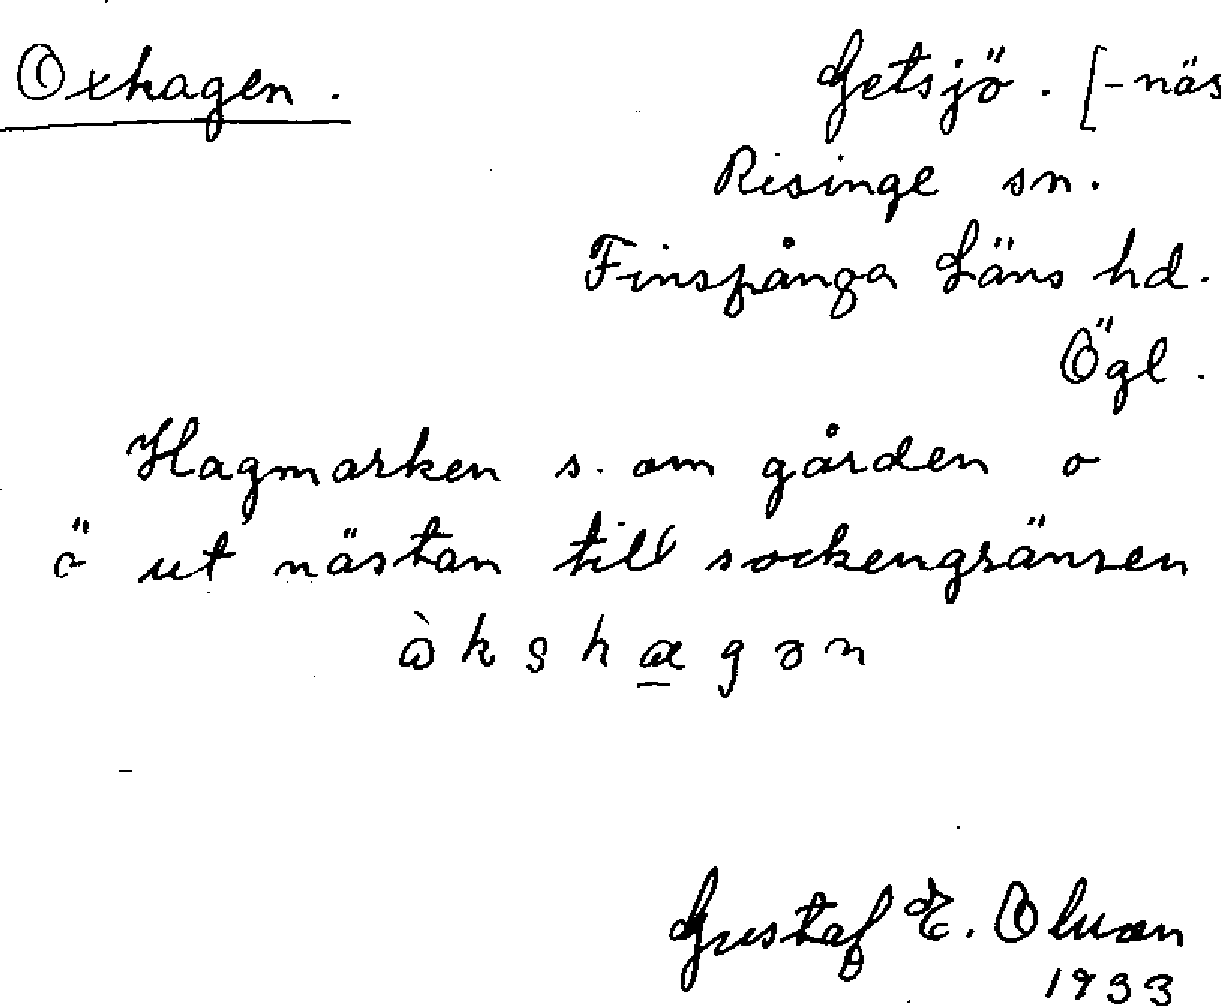 Oxhagen. Getsjö. [-näs
Risinge sn.
Finspånga Läns hd.
Ögl.
Hagmarken s. om gården o
ö ut nästan till sockengränsen
Gustaf E.
1933